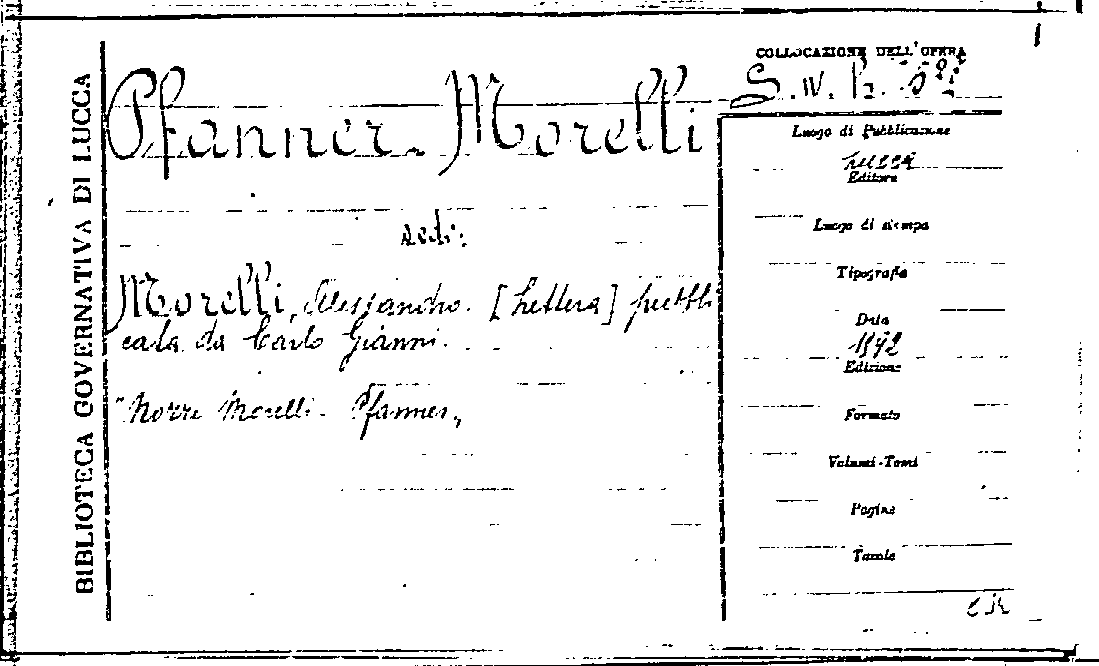 BIBLIOTECA GOVERNATIVA DI LUCCA
Pfanner-Morelli
vedi:
Morelli, Alessandro. [Lettera] pubbli
cata da Carlo Gianni.
"Nozze Morelli-Pfanner,,
COLLOCAZIONE DELL'OPERA
Luogo di Pubblicazione
Lucca
Editore
Luogo di stampa
Tipografia
Data
Edizione
Formato
Volumi-Tomi
Pagine
Tavole